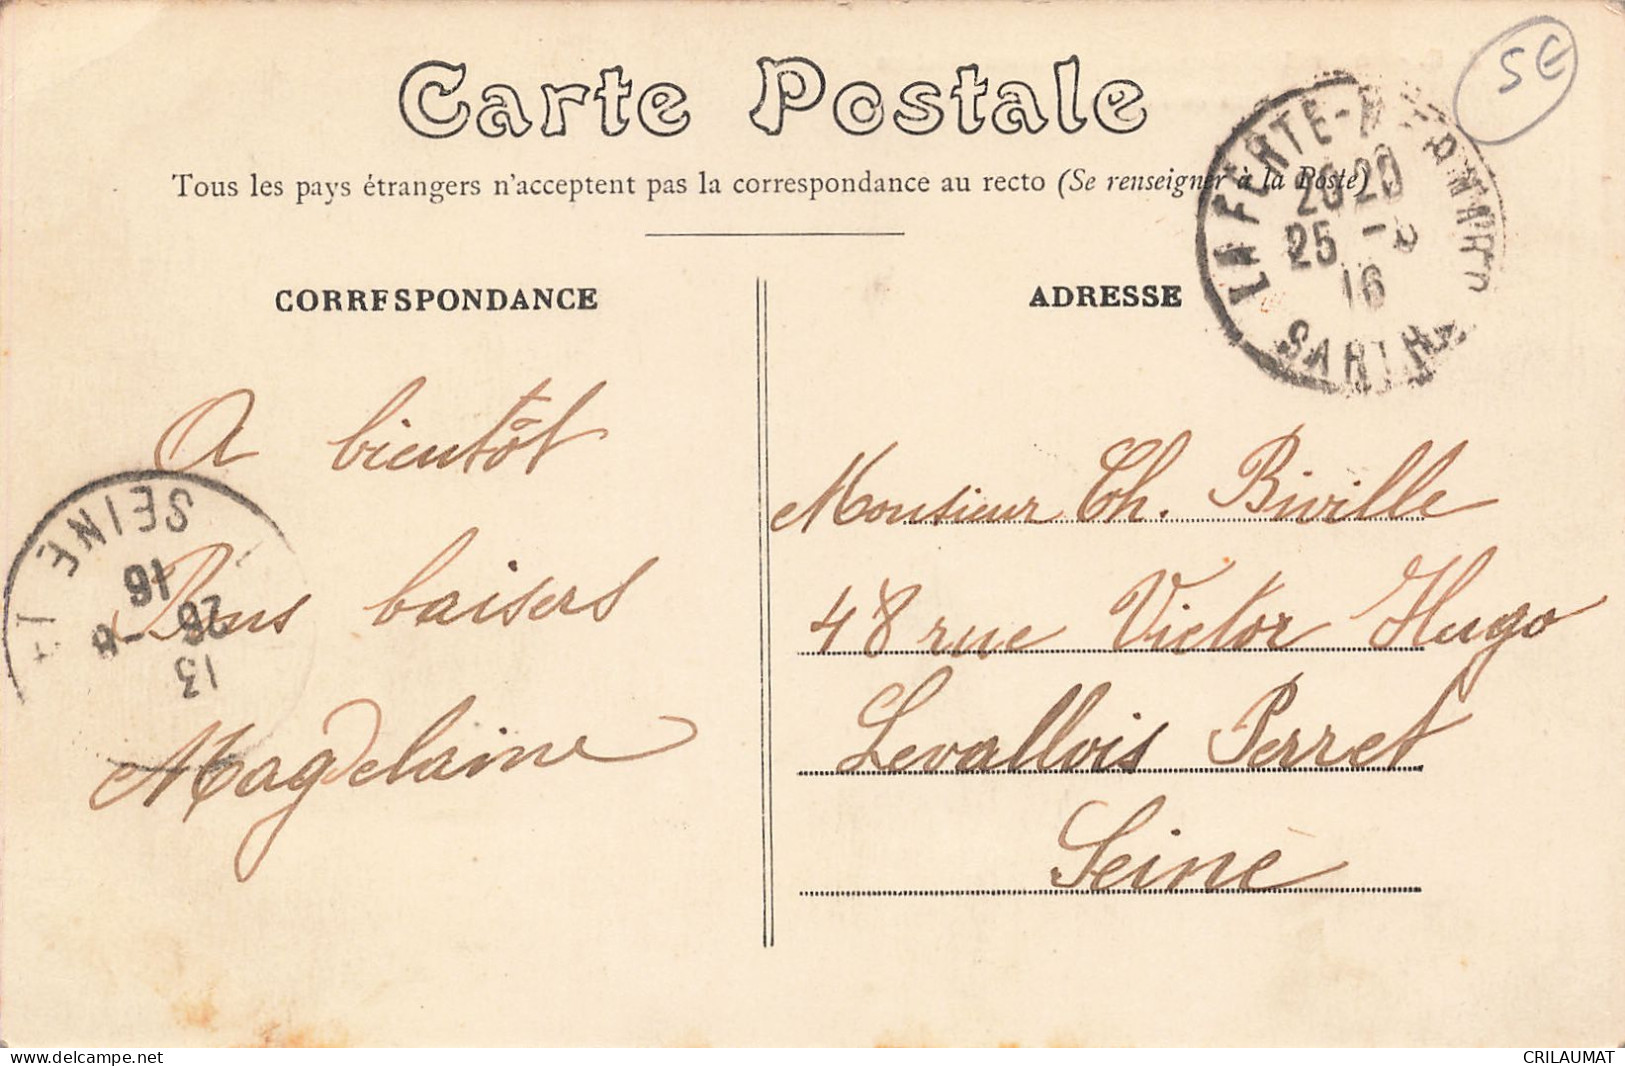 Carte Postale
Tous les pays étrangers n'acceptent pas la correspondance au recto (Se renseigner à la Poste)
CORRESPONDANCE
A bientôt
Bons baisers
Magdelaine
ADRESSE
Monsieur Ch. Biville
48 rue Victor Hugo
Levallois Perret
Seine
LA FERTE-BERNARD
20 20
25 -
16
SARTHE
SEINE
16
26 -
13
5€
delcampe.net
CRILAUMAT